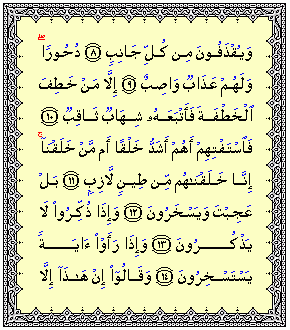 وَيُقْذَفُونَ مِن كُلِّ جَانِبٍ ۝٨ دُحُورًاۖ
وَلَهُمْ عَذَابٌ وَاصِبٌ ۝٩ إِلَّا مَنْ خَطِفَ
ٱلْخَطْفَةَ فَأَتْبَعَهُۥ شِهَابٌ ثَاقِبٌ ۝١٠
فَٱسْتَفْتِهِمْ أَهُمْ أَشَدُّ خَلْقًا أَم مَّنْ خَلَقْنَآۚ
إِنَّا خَلَقْنَٰهُم مِّن طِينٍ لَّازِبٍۭ ۝١١ بَلْ
عَجِبْتَ وَيَسْخَرُونَ ۝١٢ وَإِذَا ذُكِّرُوا۟ لَا
يَذْكُرُونَ ۝١٣ وَإِذَا رَأَوْا۟ ءَايَةً
يَسْتَسْخِرُونَ ۝١٤ وَقَالُوٓا۟ إِنْ هَٰذَآ إِلَّا